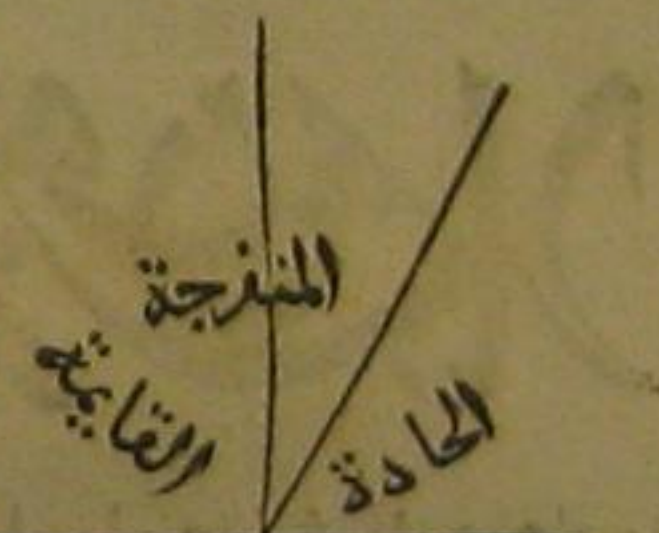 المنفرجة
القايمة
الحادة